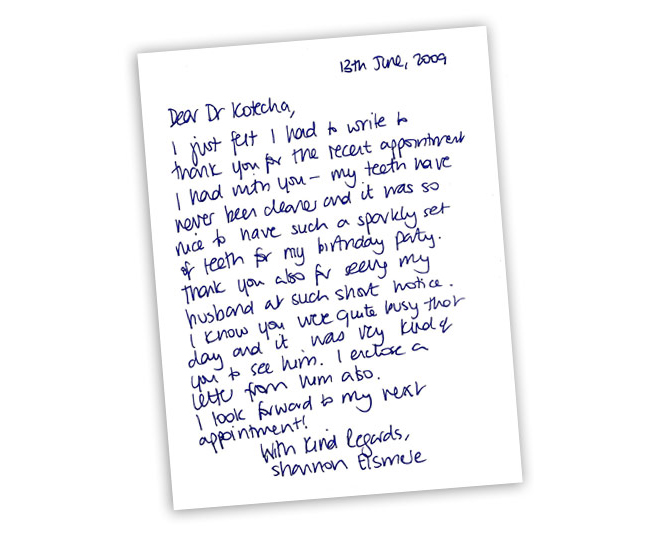 13th June, 2009
Dear Dr Kotecha,
I just felt I had to write to
thank you for the recent appointment
I had with you – my teeth have
never been cleaner and it was so
nice to have such a sparkly set
of teeth for my birthday party.
Thank you also for seeing my
husband at such short notice.
I know you were quite busy that
day and it was very kind of
you to see him. I enclose a
letter from him also.
I look forward to my next
appointment!
With kind regards,
Shannon